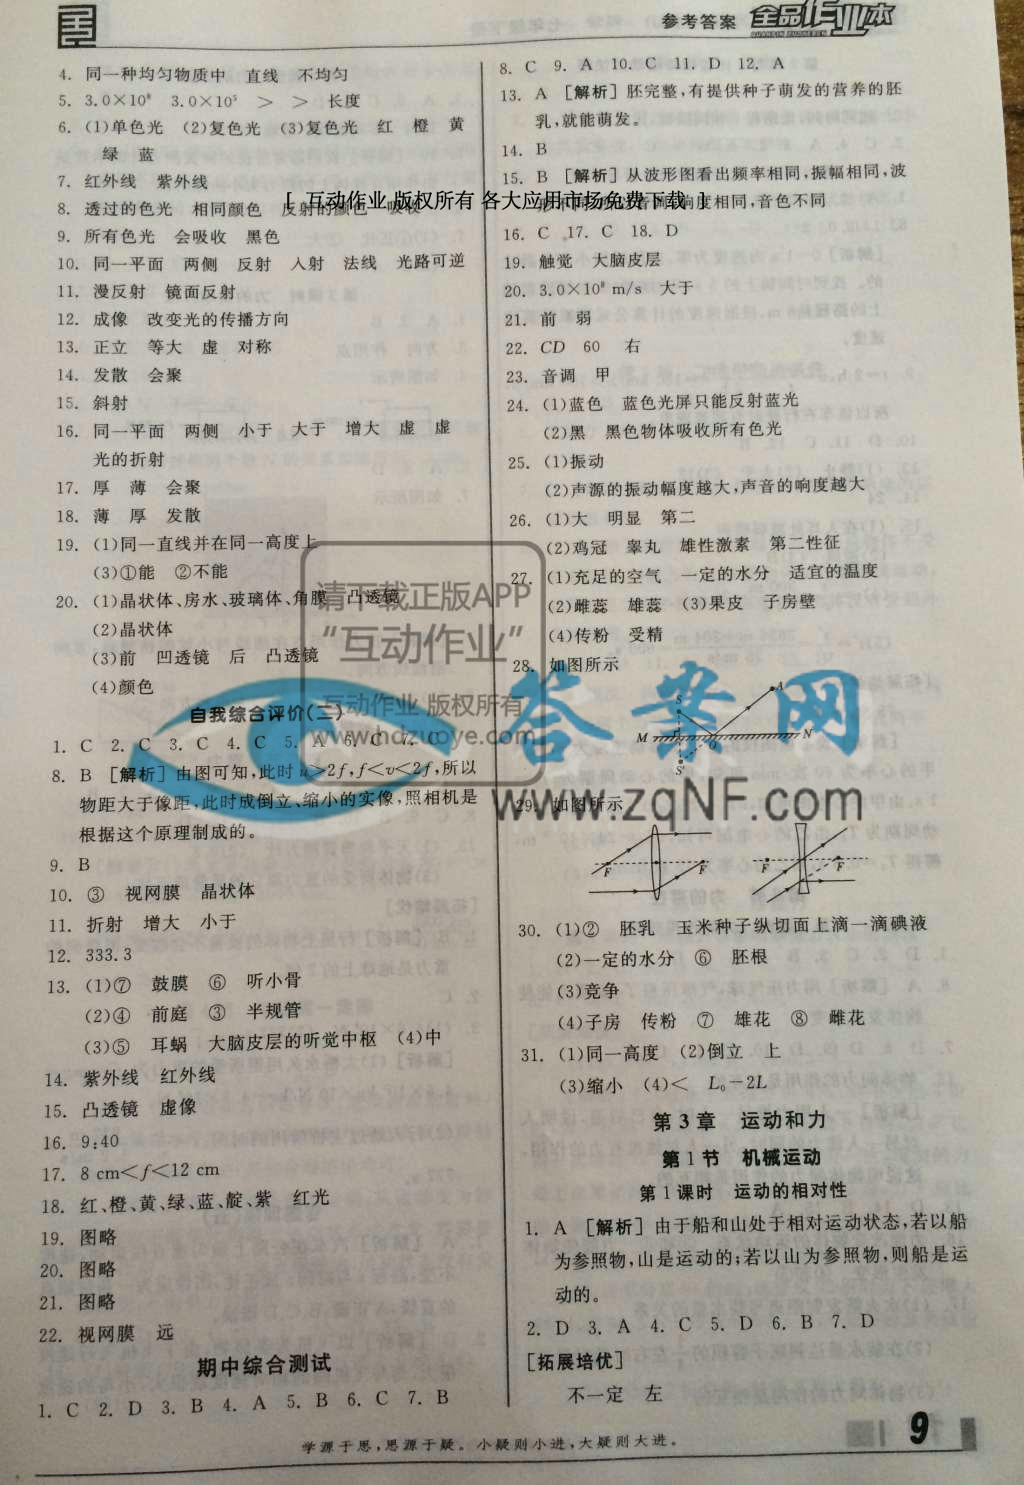 参考答案 全品作业本
QUANPIN ZUOYEBEN
4. 同一种均匀物质中 直线 不均匀
5. 3.0×10⁸ 3.0×10⁵ > > 长度
6. (1)单色光 (2)复色光 (3)复色光 红 橙 黄
绿 蓝
7. 红外线 紫外线
8. 透过的色光 相同颜色 反射的颜色 吸收
9. 所有色光 会吸收 黑色
10. 同一平面 两侧 反射 入射 法线 光路可逆
11. 漫反射 镜面反射
12. 成像 改变光的传播方向
13. 正立 等大 虚 对称
14. 发散 会聚
15. 斜射
16. 同一平面 两侧 小于 大于 增大 虚 虚
光的折射
17. 厚 薄 会聚
18. 薄 厚 发散
19. (1)同一直线并在同一高度上
(3)①能 ②不能
20. (1)晶状体、房水、玻璃体、角膜 凸透镜
(2)晶状体
(3)前 凹透镜 后 凸透镜
(4)颜色
自我综合评价(二)
1. C 2. C 3. C 4. C 5. A 6. C 7.
8. B [解析] 由图可知,此时u>2f,f<v<2f,所以
物距大于像距,此时成倒立、缩小的实像,照相机是
根据这个原理制成的。
9. B
10. ③ 视网膜 晶状体
11. 折射 增大 小于
12. 333.3
13. (1)⑦ 鼓膜 ⑥ 听小骨
(2)④ 前庭 ③ 半规管
(3)⑤ 耳蜗 大脑皮层的听觉中枢 (4)中
14. 紫外线 红外线
15. 凸透镜 虚像
16. 9:40
17. 8 cm<f<12 cm
18. 红、橙、黄、绿、蓝、靛、紫 红光
19. 图略
20. 图略
21. 图略
22. 视网膜 远
期中综合测试
1. C 2. D 3. B 4. A 5. B 6. C 7. B
8. C 9. A 10. C 11. D 12. A
13. A [解析] 胚完整,有提供种子萌发的营养的胚
乳,就能萌发。
14. B
15. B [解析] 从波形图看出频率相同,振幅相同,波
响度相同,音色不同
16. C 17. C 18. D
19. 触觉 大脑皮层
20. 3.0×10⁸ m/s 大于
21. 前 弱
22. CD 60 右
23. 音调 甲
24. (1)蓝色 蓝色光屏只能反射蓝光
(2)黑 黑色物体吸收所有色光
25. (1)振动
(2)声源的振动幅度越大,声音的响度越大
26. (1)大 明显 第二
(2)鸡冠 睾丸 雄性激素 第二性征
27. (1)充足的空气 一定的水分 适宜的温度
(2)雌蕊 雄蕊 (3)果皮 子房壁
(4)传粉 受精
28. 如图所示
A
S
M O N
S'
29. 如图所示
F F F F
30. (1)② 胚乳 玉米种子纵切面上滴一滴碘液
(2)一定的水分 ⑥ 胚根
(3)竞争
(4)子房 传粉 ⑦ 雄花 ⑧ 雌花
31. (1)同一高度 (2)倒立 上
(3)缩小 (4)< L₀-2L
第3章 运动和力
第1节 机械运动
第1课时 运动的相对性
1. A [解析] 由于船和山处于相对运动状态,若以船
为参照物,山是运动的;若以山为参照物,则船是运
动的。
2. D 3. A 4. C 5. D 6. B 7. D
[拓展培优]
不一定 左
学源于思,思源于疑。小疑则小进,大疑则大进。
9
[ 互动作业 版权所有 各大应用市场免费下载 ]
请下载正版APP
“互动作业”
互动作业 版权所有
www.hdzuoye.com
答案网
www.zqNF.com